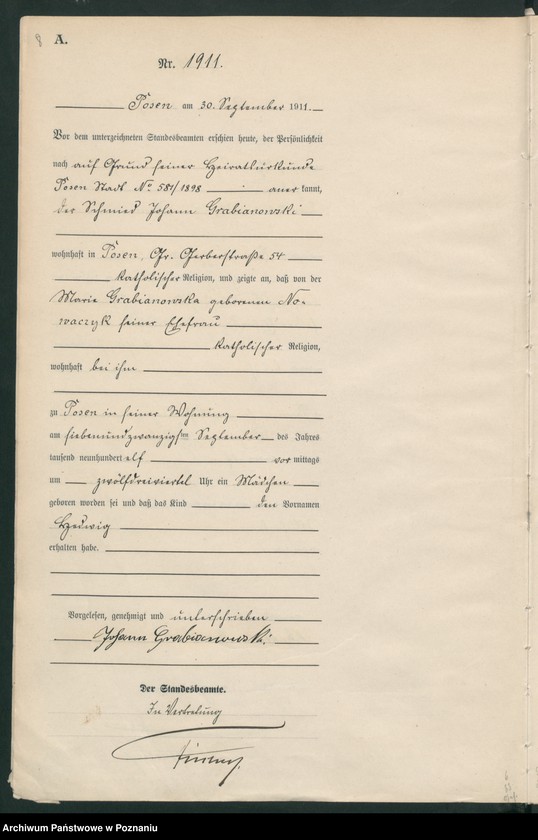 8
A.
Nr. 1911.
Posen am 30. September 1911.
Vor dem unterzeichneten Standesbeamten erschien heute, der Persönlichkeit
nach auf Grund seiner Heiratsurkunde
Posen Stadt No 581/1898 aner kannt,
der Schmied Johann Grabianowski
wohnhaft in Posen, Gr. Gerberstraße 54
katholischer Religion, und zeigte an, daß von der
Marie Grabianowska geborenen No-
waczyk seiner Ehefrau
katholischer Religion,
wohnhaft bei ihm
zu Posen in seiner Wohnung
am siebenundzwanzigsten September des Jahres
tausend neunhundert elf vor mittags
um zwölfdreiviertel Uhr ein Mädchen
geboren worden sei und daß das Kind den Vornamen
Hedwig
erhalten habe.
Vorgelesen, genehmigt und unterschrieben
Johann Grabianowski
Der Standesbeamte.
In Vertretung
Archiwum Państwowe w Poznaniu